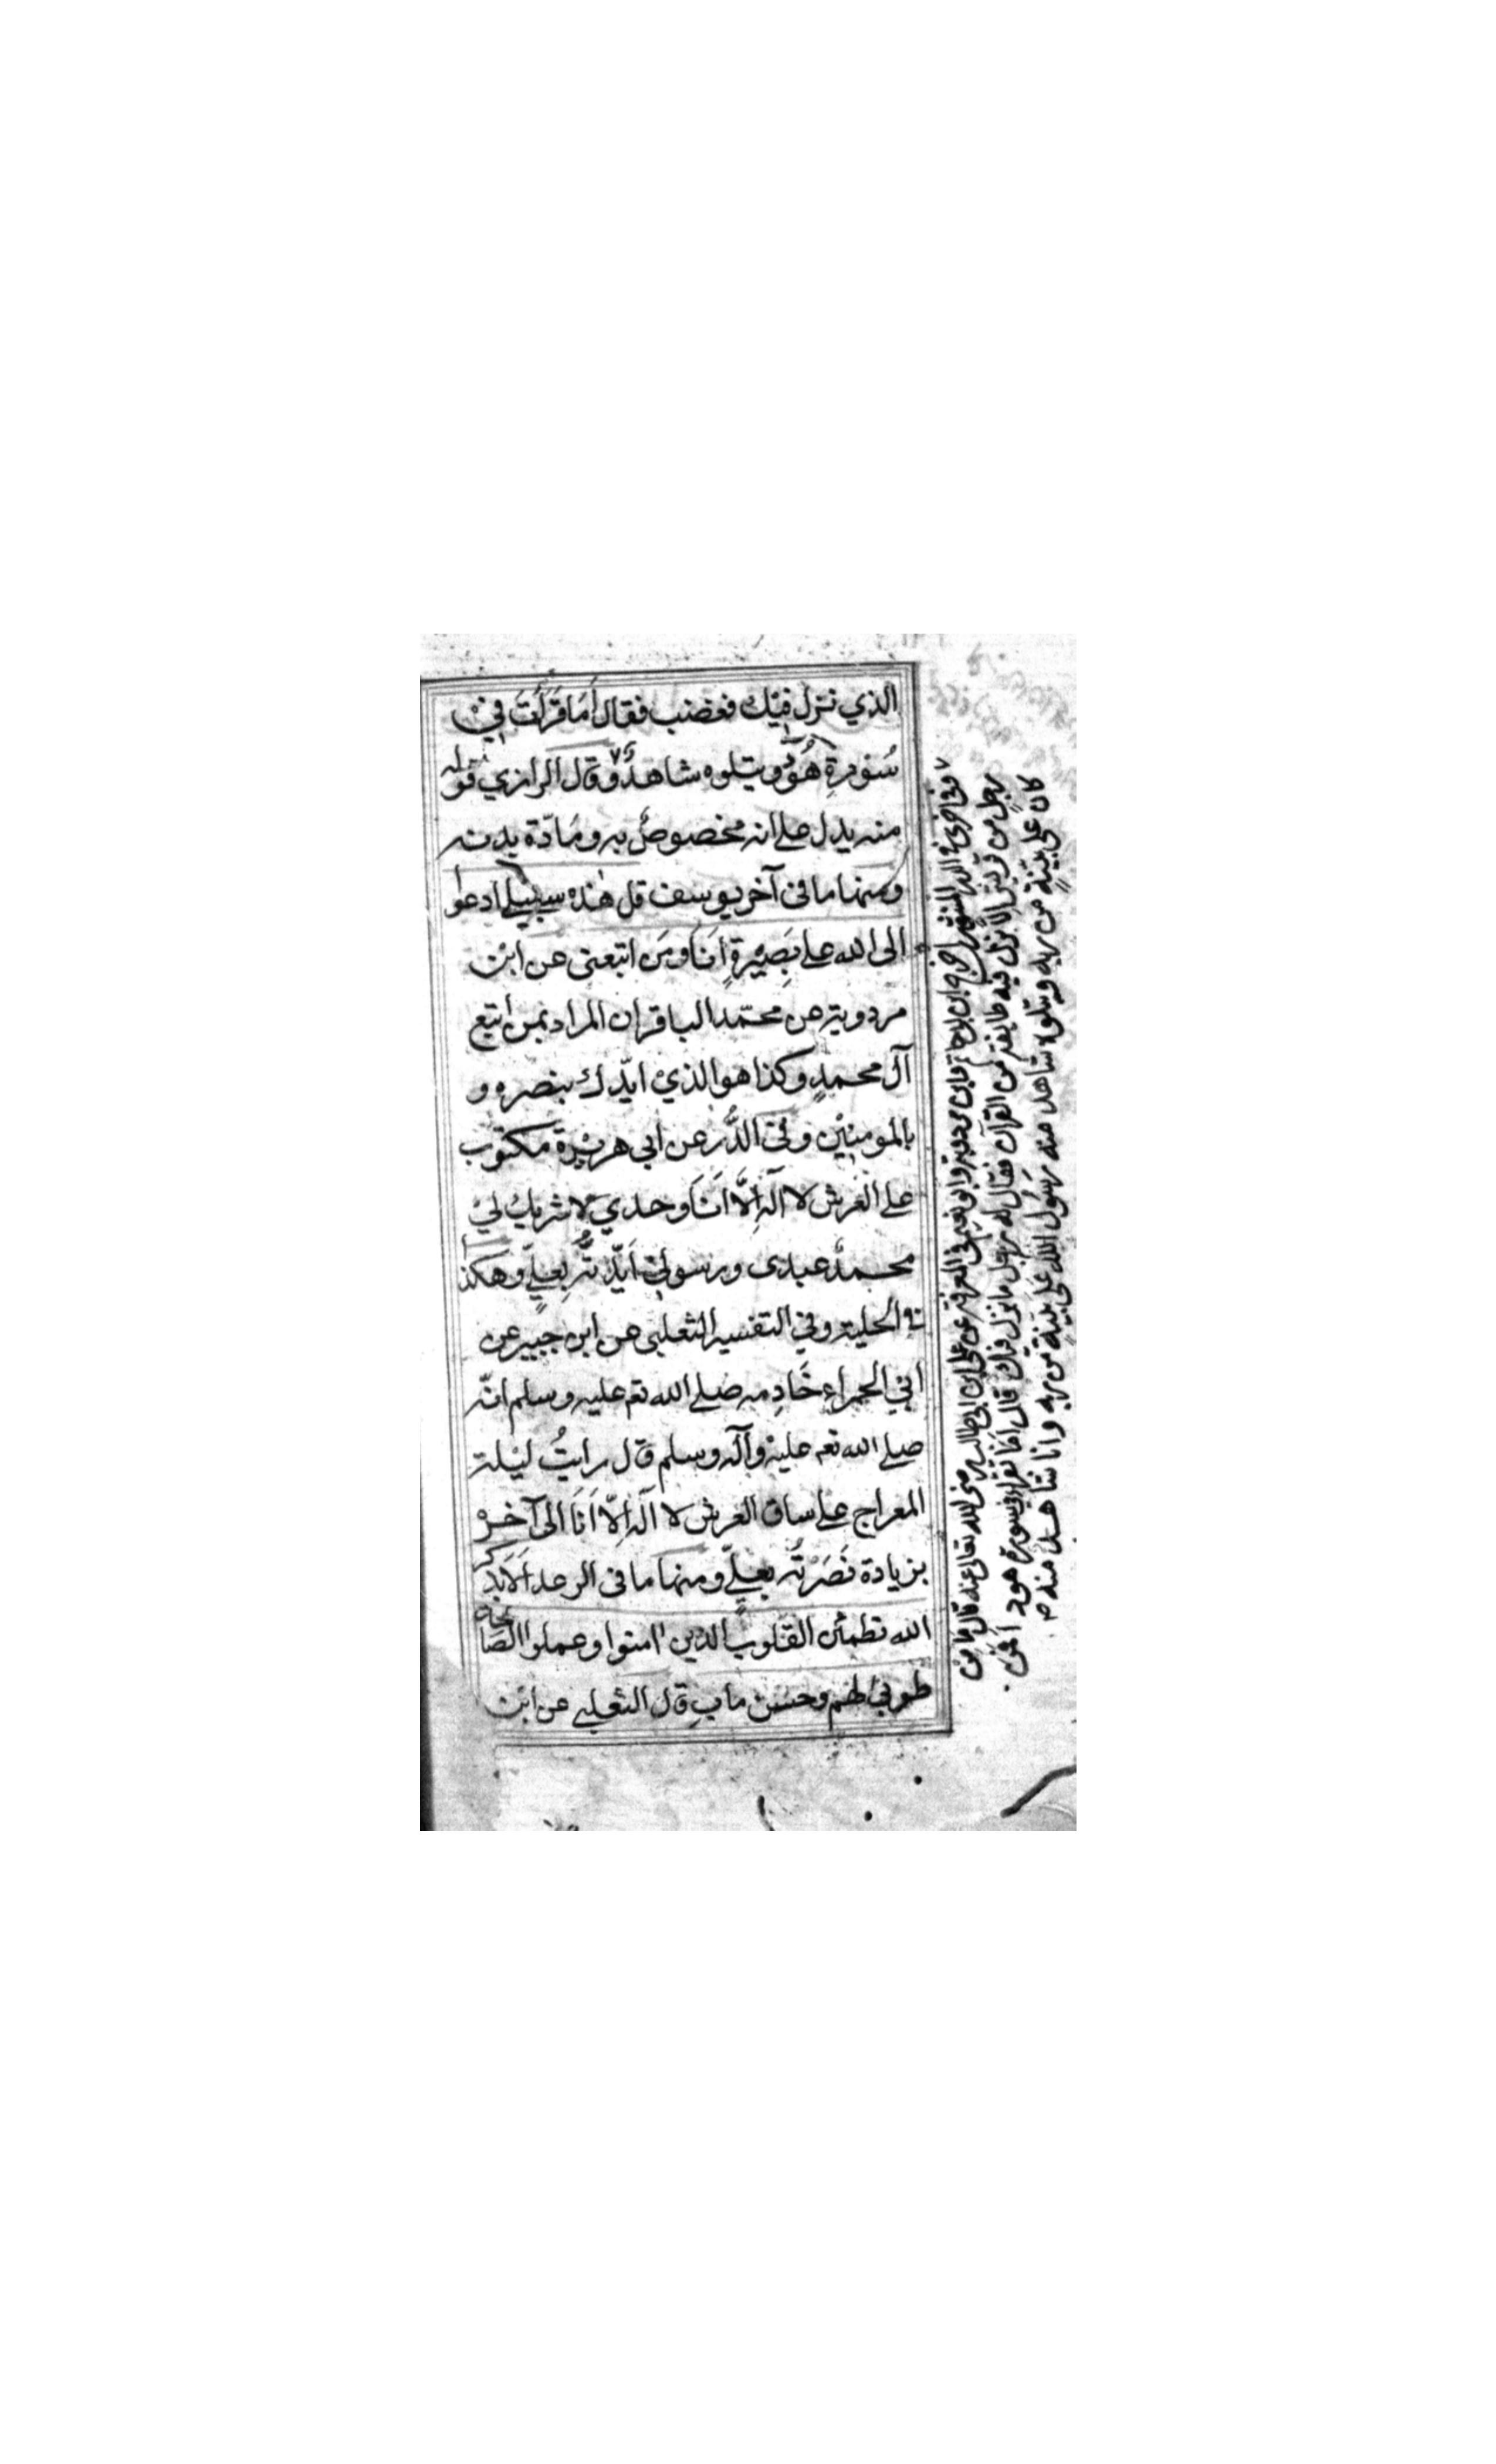 الذي نزل فيك فغضب فقال أَمَا قَرَأتَ في
سُورةِ هُودٍ ويتلوه شاهدٌ وقال الرازي قوله
منه يدل على انه مخصوصٌ به ومادّة بدنه
ومنها ما في آخر يوسف قل هٰذه سبيلي ادعوا
الى الله على بَصِيْرةٍ اَنَا ومَن اتبعنى عن ابن
مردويه عن محمّد الباقر ان المراد بمن اتبع
آل محمدٍ وكذا هو الذي ايّدك بنصره و
بالمومنين وفى الدُّر عن ابي هريرة مكتوب
على العرش لا آله اِلّا اَنَا وحدي لا شريك لي
محمدٌ عبدى ورسولي اَيّدتُّه بِعليٍّ وهكذا
في الحلية وفي التفسير الثعلبى عن ابن جبير عن
ابي الحمراءِ خَادِمه صلى الله تعم عليه وسلم انّه
صلى الله تعم عليه وآله وسلم قال رايتُ ليلة
المعراج على ساق العرش لا اله اِلّا اَنَا الى آخره
بزيادة نَصَرْتُه بعليٍّ ومنها ما فى الرعد اَلَا بذكر
الله تطمئن القلوب الذين امنوا وعملوا الصّالحات
طوبى لهم وحسن ماب قال الثعلبي عن ابن
وفى اخرى فى الدر المنثور اخرج ابن ابى حاتم وابن مردويه وابو نعيم فى المعرفة عن على ابن ابى طالب رضى الله تعالى عنه قال ما من
رجلٍ من قريش اِلّا نزل فيه طايفة من القرآن فقال له رجل ما نزل فيك قال اَمَا تقرا في سورة هود اَفمن
كان على بيّنةٍ من ربه ويتلوه شاهد منه رسُول الله على بيّنةٍ من ربه وانا شاهد منه